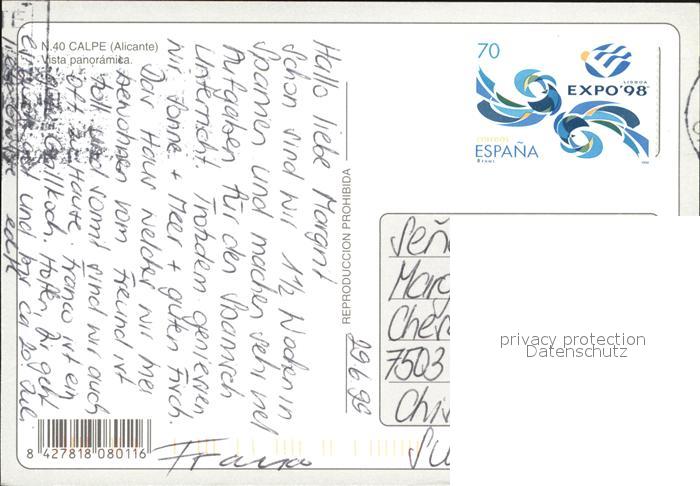 N.40 CALPE (Alicante)
Vista panorámica.
Hallo liebe Margrit
schon sind wir 1 1/2 Wochen in
Spanien und machen sehr viel
Aufgaben für den Spanisch
Unterricht. Trotzdem geniessen
wir Sonne + Meer + guten Fisch.
Das Haus welches wir hier
bewohnen vom Freund ist
toll und somit sind wir auch
zu Hause. Franco ist ein
Grillkoch. Hoffen, Dir geht
es gut und bis ca 20. Juli
Liebe Grüsse
Edith
Franco
REPRODUCCION PROHIBIDA
29 6 98
70
LISBOA
EXPO'98
CORREOS
ESPAÑA
Señ
Marg
Cher
7503
Chi
Su
privacy protection
Datenschutz
8 427818 080116